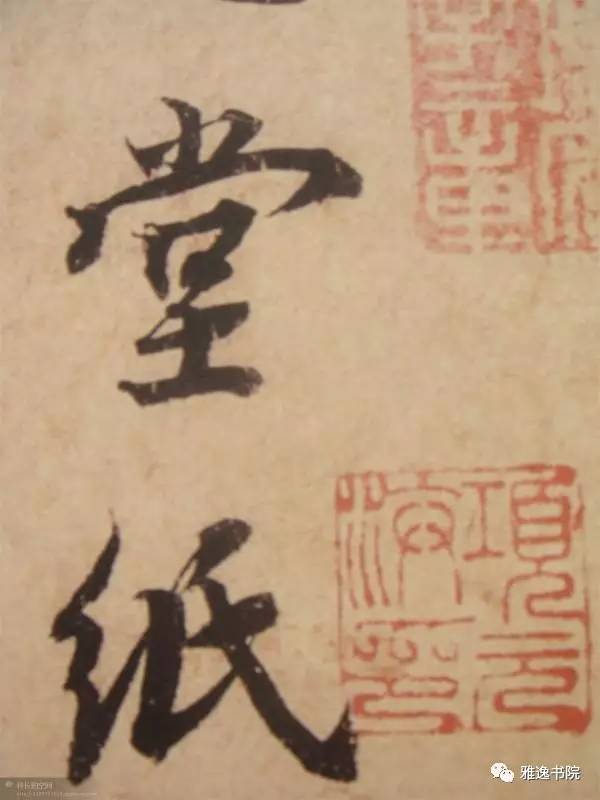 堂紙
項元
汴印
雅逸书院